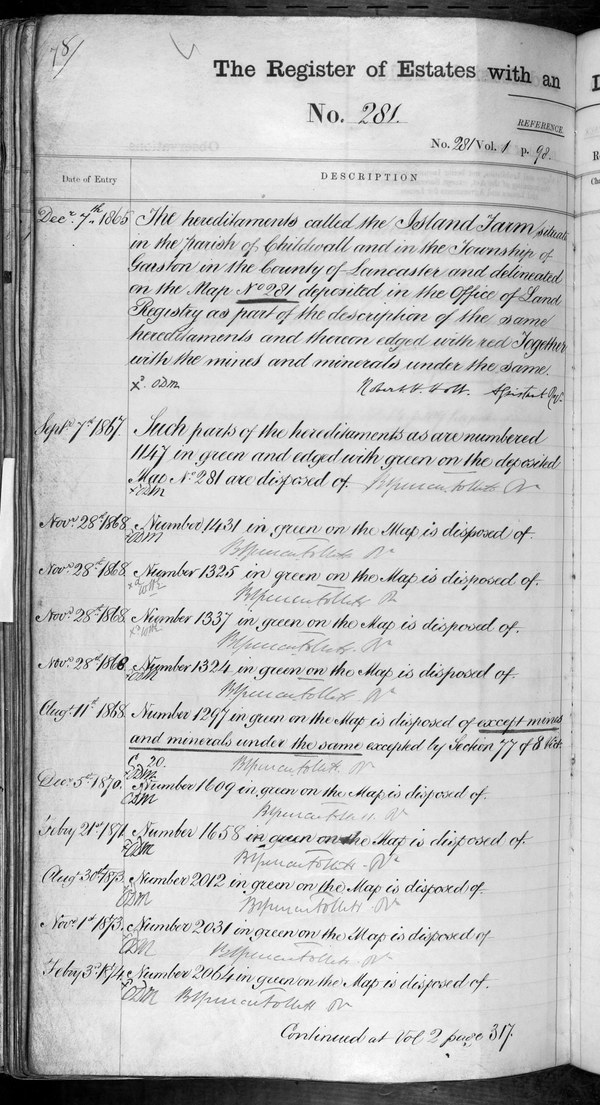 78/
The Register of Estates with an
No. 281.
REFERENCE.
No. 281 Vol. 1 p. 98.
Date of Entry
DESCRIPTION
Decr. 7th 1865 The hereditaments called the Island Farm situate
in the parish of Childwall and in the Township of
Garston in the County of Lancaster and delineated
on the Map No 281 deposited in the Office of Land
Registry as part of the description of the same
hereditaments and thereon edged with red Together
with the mines and minerals under the same.
xd. ODM Robert H. Holt. Assistant Regr.
Septr. 7th 1867. Such parts of the hereditaments as are numbered
1147 in green and edged with green on the deposited
Map No 281 are disposed of. BSpencer Follett Rr
x ODM
Novr. 28th 1868. Number 1431 in green on the Map is disposed of.
x ODM
BSpencer Follett Rr
Novr. 28th 1868. Number 1325 in green on the Map is disposed of.
BSpencer Follett Rr
Novr. 28th 1868. Number 1337 in green on the Map is disposed of.
BSpencer Follett Rr
Novr. 28th 1868. Number 1324 in green on the Map is disposed of.
x ODM
BSpencer Follett Rr
Augt. 11th 1868. Number 1297 in green on the Map is disposed of except mines
and minerals under the same excepted by Section 77 of 8 Vict.
C. 20.
BSpencer Follett. Rr
x ODM
Decr. 5th 1870. Number 1609 in green on the Map is disposed of.
ODM
BSpencer Follett Rr
Febry 21st 1871. Number 1658 in green on the Map is disposed of.
x ODM
BSpencer Follett Rr
Augt 30th 1873. Number 2012 in green on the Map is disposed of.
x ODM
BSpencer Follett Rr
Novr. 1st 1873. Number 2031 in green on the Map is disposed of
x ODM
BSpencer Follett Rr
Febry 3rd 1874. Number 2064 in green on the Map is disposed of.
x ODM BSpencer Follett Rr
Continued at Vol 2 page 317.